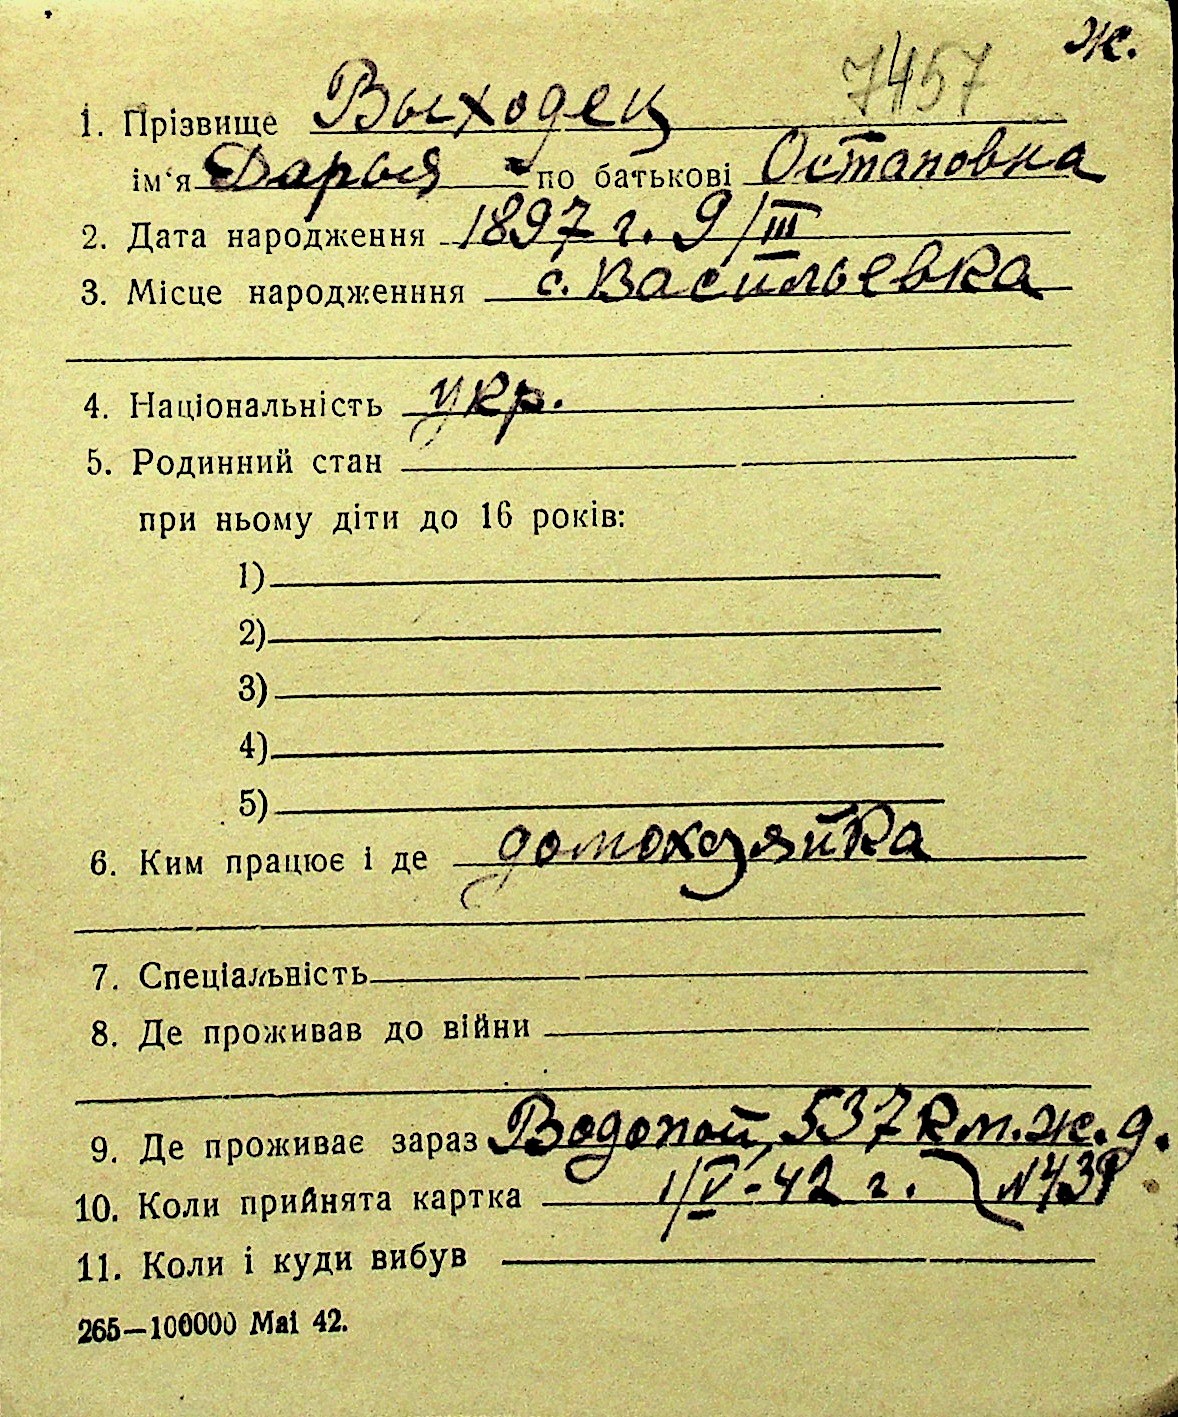 ж.
7457
1. Прізвище Выходец
ім'я Дарья по батькові Остаповна
2. Дата народження 1897 г. 9/III
3. Місце народженння с. Васильевка
4. Національність укр.
5. Родинний стан
при ньому діти до 16 років:
1)
2)
3)
4)
5)
6. Ким працює і де домохозяйка
7. Спеціальність
8. Де проживав до війни
9. Де проживає зараз Водопой, 537 км. ж. д.
10. Коли прийнята картка 1/V-42 г.
11. Коли і куди вибув
265—100000 Mai 42.